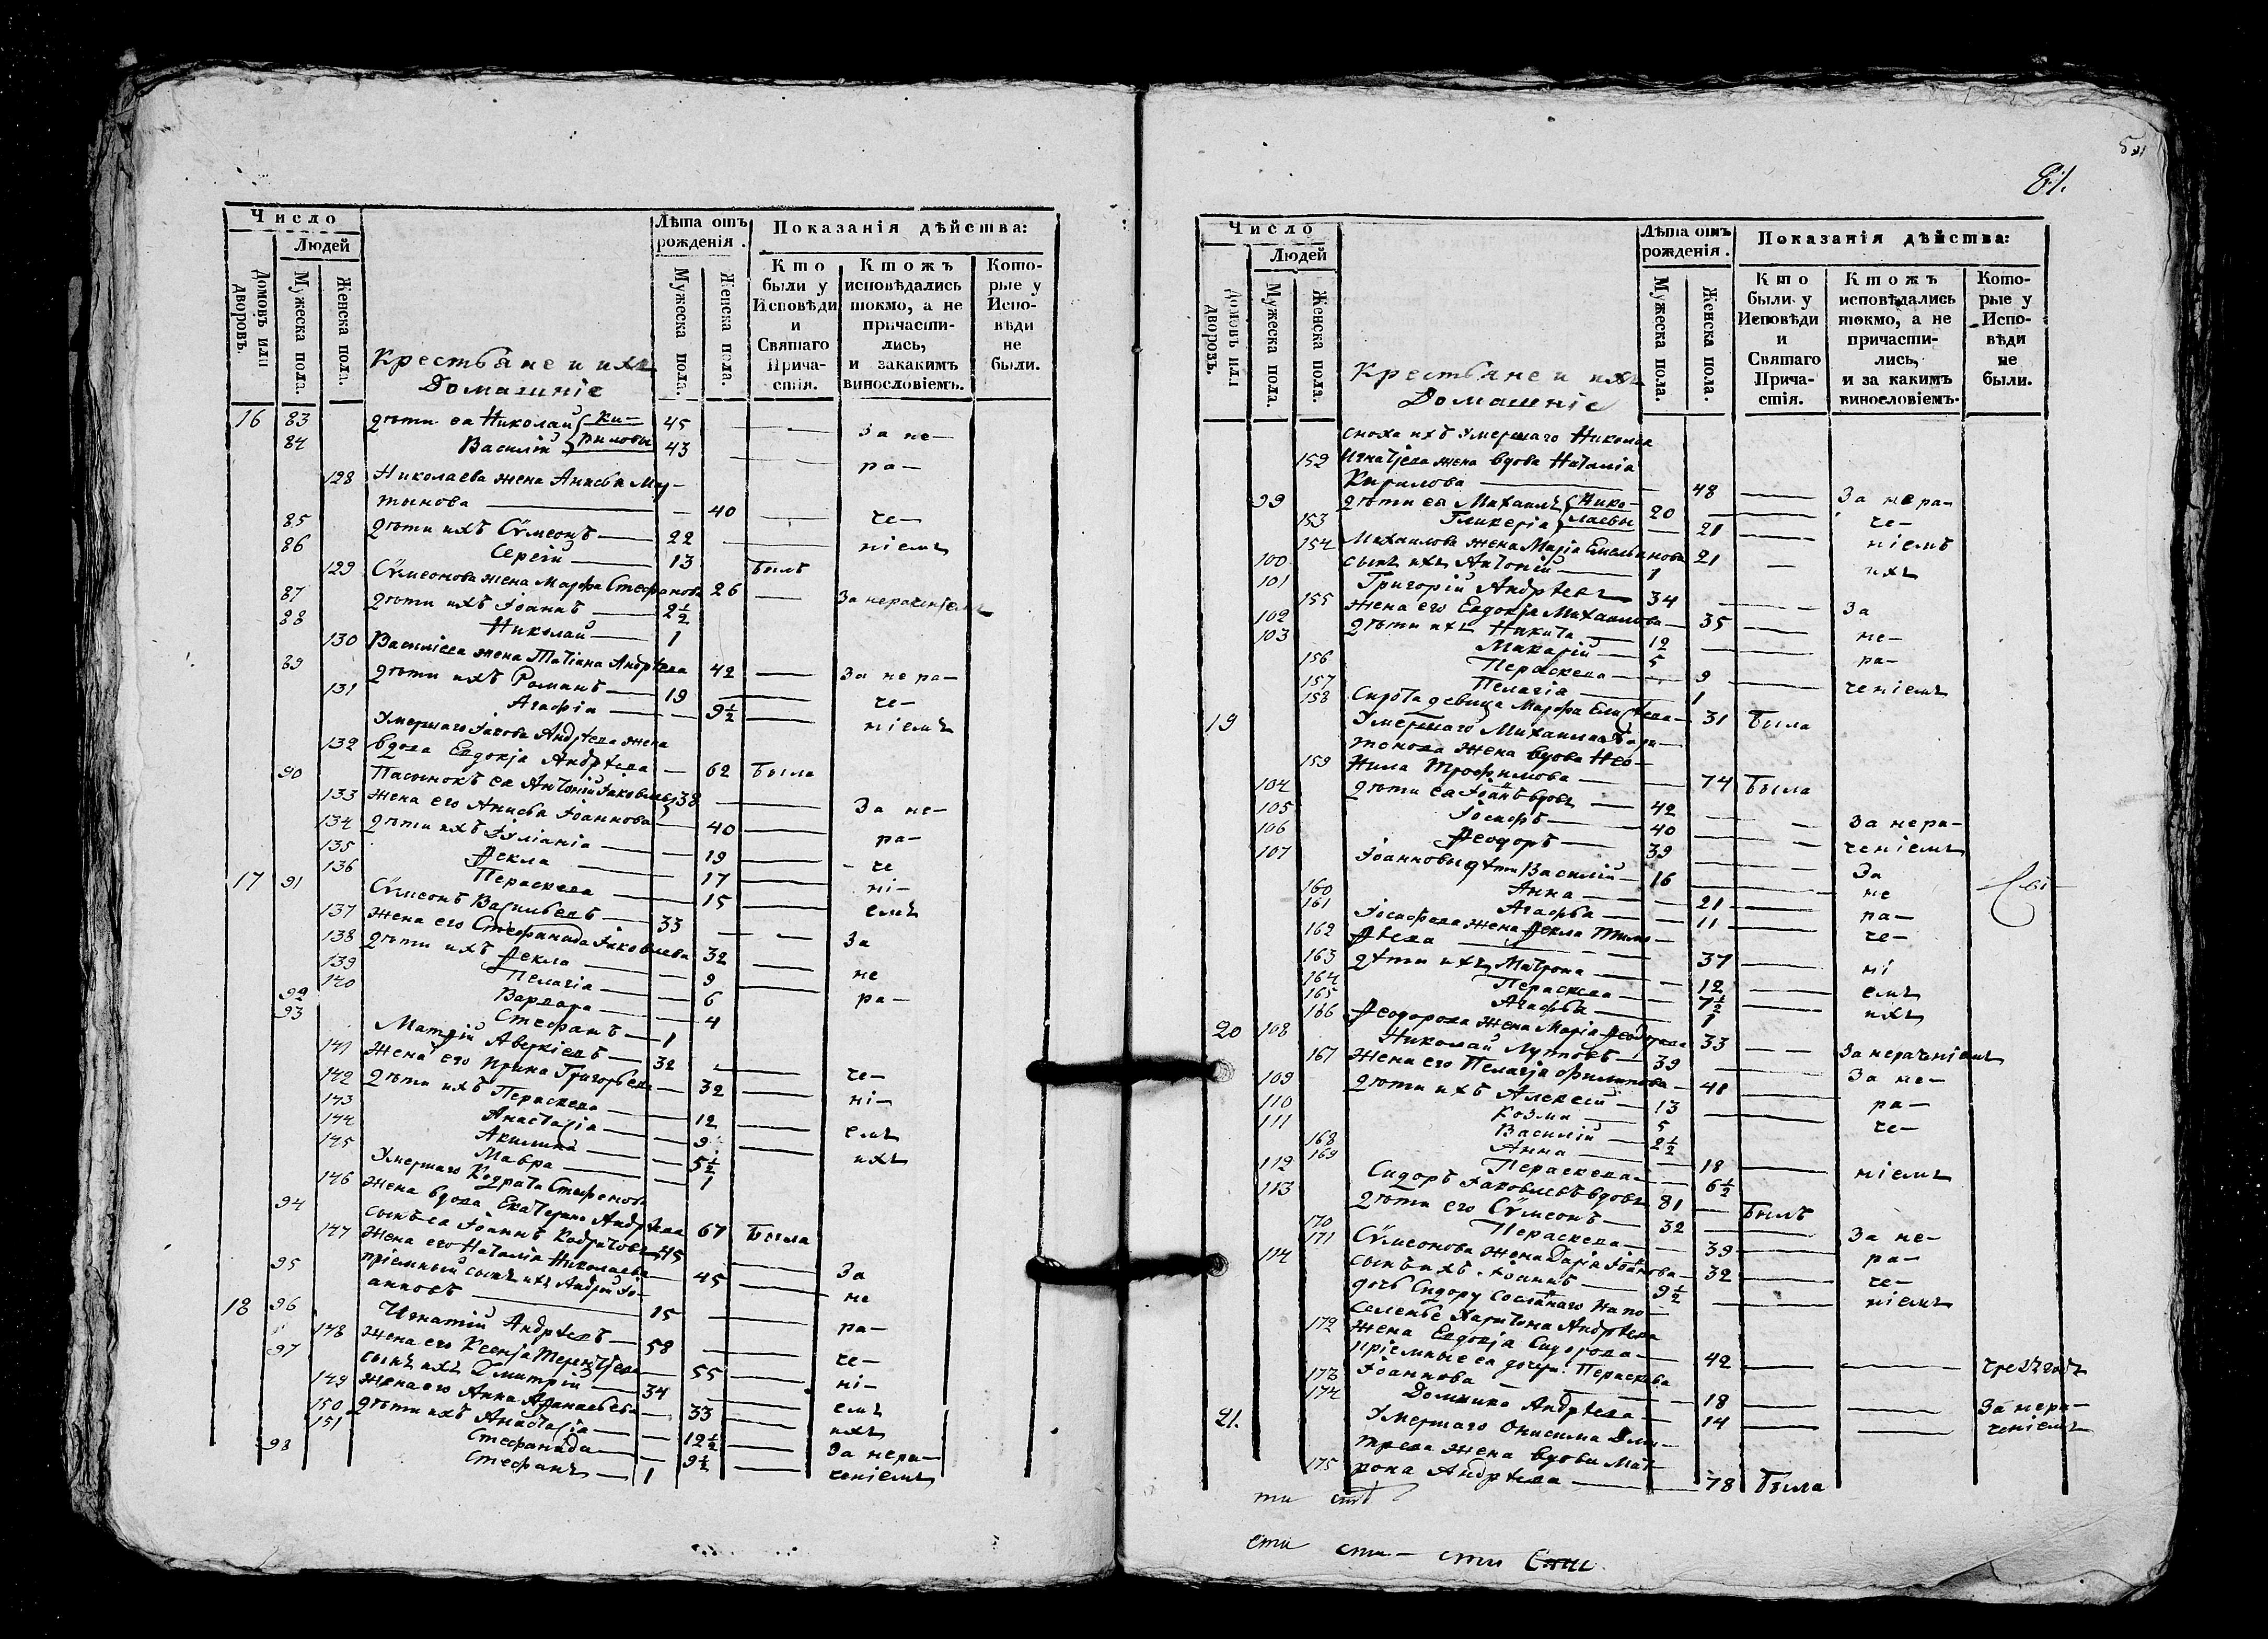 Число
Людей
Домовъ или дворовъ.
Мужеска пола.
Женска пола.
Крестьяне и ихъ
Домашніе
Лѣта отъ рожденія.
Мужеска пола.
Женска пола.
Показанія дѣйства:
Кто были у Исповѣди и Святаго Причастія.
Ктожъ исповѣдались токмо, а не причастились, и закакимъ винословіемъ.
Которые у Исповѣди не были.
16 83 дѣти еа Николай Ки- 45 За не-
84 Василій риловы 43 ра-
128 Николаева жена Анисья Мар-
тынова 40 че-
85 дѣти ихъ Сѵмеонъ 22 ніемъ
86 Сергій 13 былъ
129 Сѵмеонова жена Марфа Стефанова 26 За нераченіемъ
87 дѣти ихъ Іоаннъ 2½
88 Николай 1
130 Василіева жена Татіана Андрѣева 42 За нера-
89 дѣти ихъ Романъ 19 че-
131 Агафіа 9½ ніемъ
Умершаго Іакова Андрѣева жена
132 вдова Евдокіа Андрѣева 62 была
90 Пасынокъ еа Антоній Іаковлевъ 38 За не-
133 Жена его Анисья Іоаннова 40 ра-
134 дѣти ихъ Іуліаніа 19 че
135 Ѳекла 17 ні-
136 Параскева 15 емъ
17 91 Сѵмеонъ Васильевъ 33 За
137 Жена его Стефанида Іаковлева 32 не
138 дѣти ихъ Ѳекла 9 ра-
139 Пелагіа 6
140 Варвара 4
92 Стефанъ 1
93 Матѳій Аверкіевъ 32 че-
141 Жена его Ирина Григорьева 32 ні-
142 дѣти ихъ Параскева 12 емъ
143 Анастасіа 9 ихъ
144 Акилина 5½
145 Мавра 1
Умершаго Кодрата Стефанова
146 Жена вдова Екатерина Андрѣева 67 была
94 сынъ еа Іоаннъ Кодратовъ 45 За
147 Жена его Наталіа Николаева 45 не
95 пріемный сынъ ихъ Андрей Іо-
анновъ 15 ра-
18 96 Игнатій Андрѣевъ 58 че-
148 Жена его Ксеніа Терентьева 55 ні-
97 сынъ ихъ Дмитрій 34 емъ
149 Жена его Анна Аѳанасьева 33 ихъ
150 дѣти ихъ Анастасіа 12½ За нера-
151 Стефанида 9½ ченіемъ
98 Стефанъ 1
81.
Число
Людей
Домовъ или дворовъ.
Мужеска пола.
Женска пола.
Крестьяне и ихъ
Домашніе
Лѣта отъ рожденія.
Мужеска пола.
Женска пола.
Показанія дѣйства:
Кто были у Исповѣди и Святаго Причастія.
Ктожъ исповѣдались токмо, а не причастились, и за какимъ винословіемъ.
Которые у Исповѣди не были.
сноха ихъ Умершаго Николая
152 Игнатьева жена вдова Наталіа
Кирилова 48 За нера-
99 дѣти еа Михаилъ Нико- 20 че-
153 Гликеріа лаевы 21 ніемъ
154 Михаилова жена Маріа Емельянова 21 ихъ
100 сынъ ихъ Антоній 1
101 Григорій Андрѣевъ 34 За
155 Жена его Евдокіа Михаилова 35 не-
102 дѣти ихъ Никита 12 ра-
103 Макарій 5 ченіемъ
156 Параскева 9
157 Пелагіа 1
158 Сирота девица Марфа Елисѣева 31 была
19 Умершаго Михаила Хари-
тонова жена вдова Нео-
159 нила Трофимова 74 была
104 дѣти еа Іоаннъ вдовъ 42 За нера-
105 Іосифъ 40 ченіемъ
106 Ѳеодоръ 39 За
107 Іоанновы дѣти Василій 16 не
160 Анна 21 ра-
161 Агафья 11 че-
Іосифова жена Ѳекла Тимо-
162 ѳѣева 37 ні
163 дѣти ихъ Матрона 12 емъ
164 Параскева 7½ ихъ
165 Агафья 1
166 Ѳеодорова жена Маріа Ѳеодорова 33 За нераченіемъ
20 108 Николай Луповъ 39 За не-
167 Жена его Пелагіа Филипова 41 ра-
109 дѣти ихъ Алексей 13 че-
110 Козма 5
111 Василій 2½
168 Анна 18 ніемъ
169 Параскева 6½
112 Сидоръ Іаковлевъ вдовъ 81 былъ
113 дѣти его Сѵмеонъ 32 За не-
170 Параскева 39 ра-
171 Сѵмеонова жена Даріа Іоаннова 32 че-
114 сынъ ихъ Іоаннъ 9½ ніемъ
дочь Сидору Сосланаго на по-
селенье Харитона Андрѣева
172 жена Евдокіа Сидорова 42
пріемные еа дочери Параскева
173 Іоаннова 18 За нера-
174 Домника Андрѣева 14 ченіемъ
21. Умершаго Онисима Дми-
тріева жена вдова Мат-
175 рона Андрѣева 78 была
ти
сти сти- сти